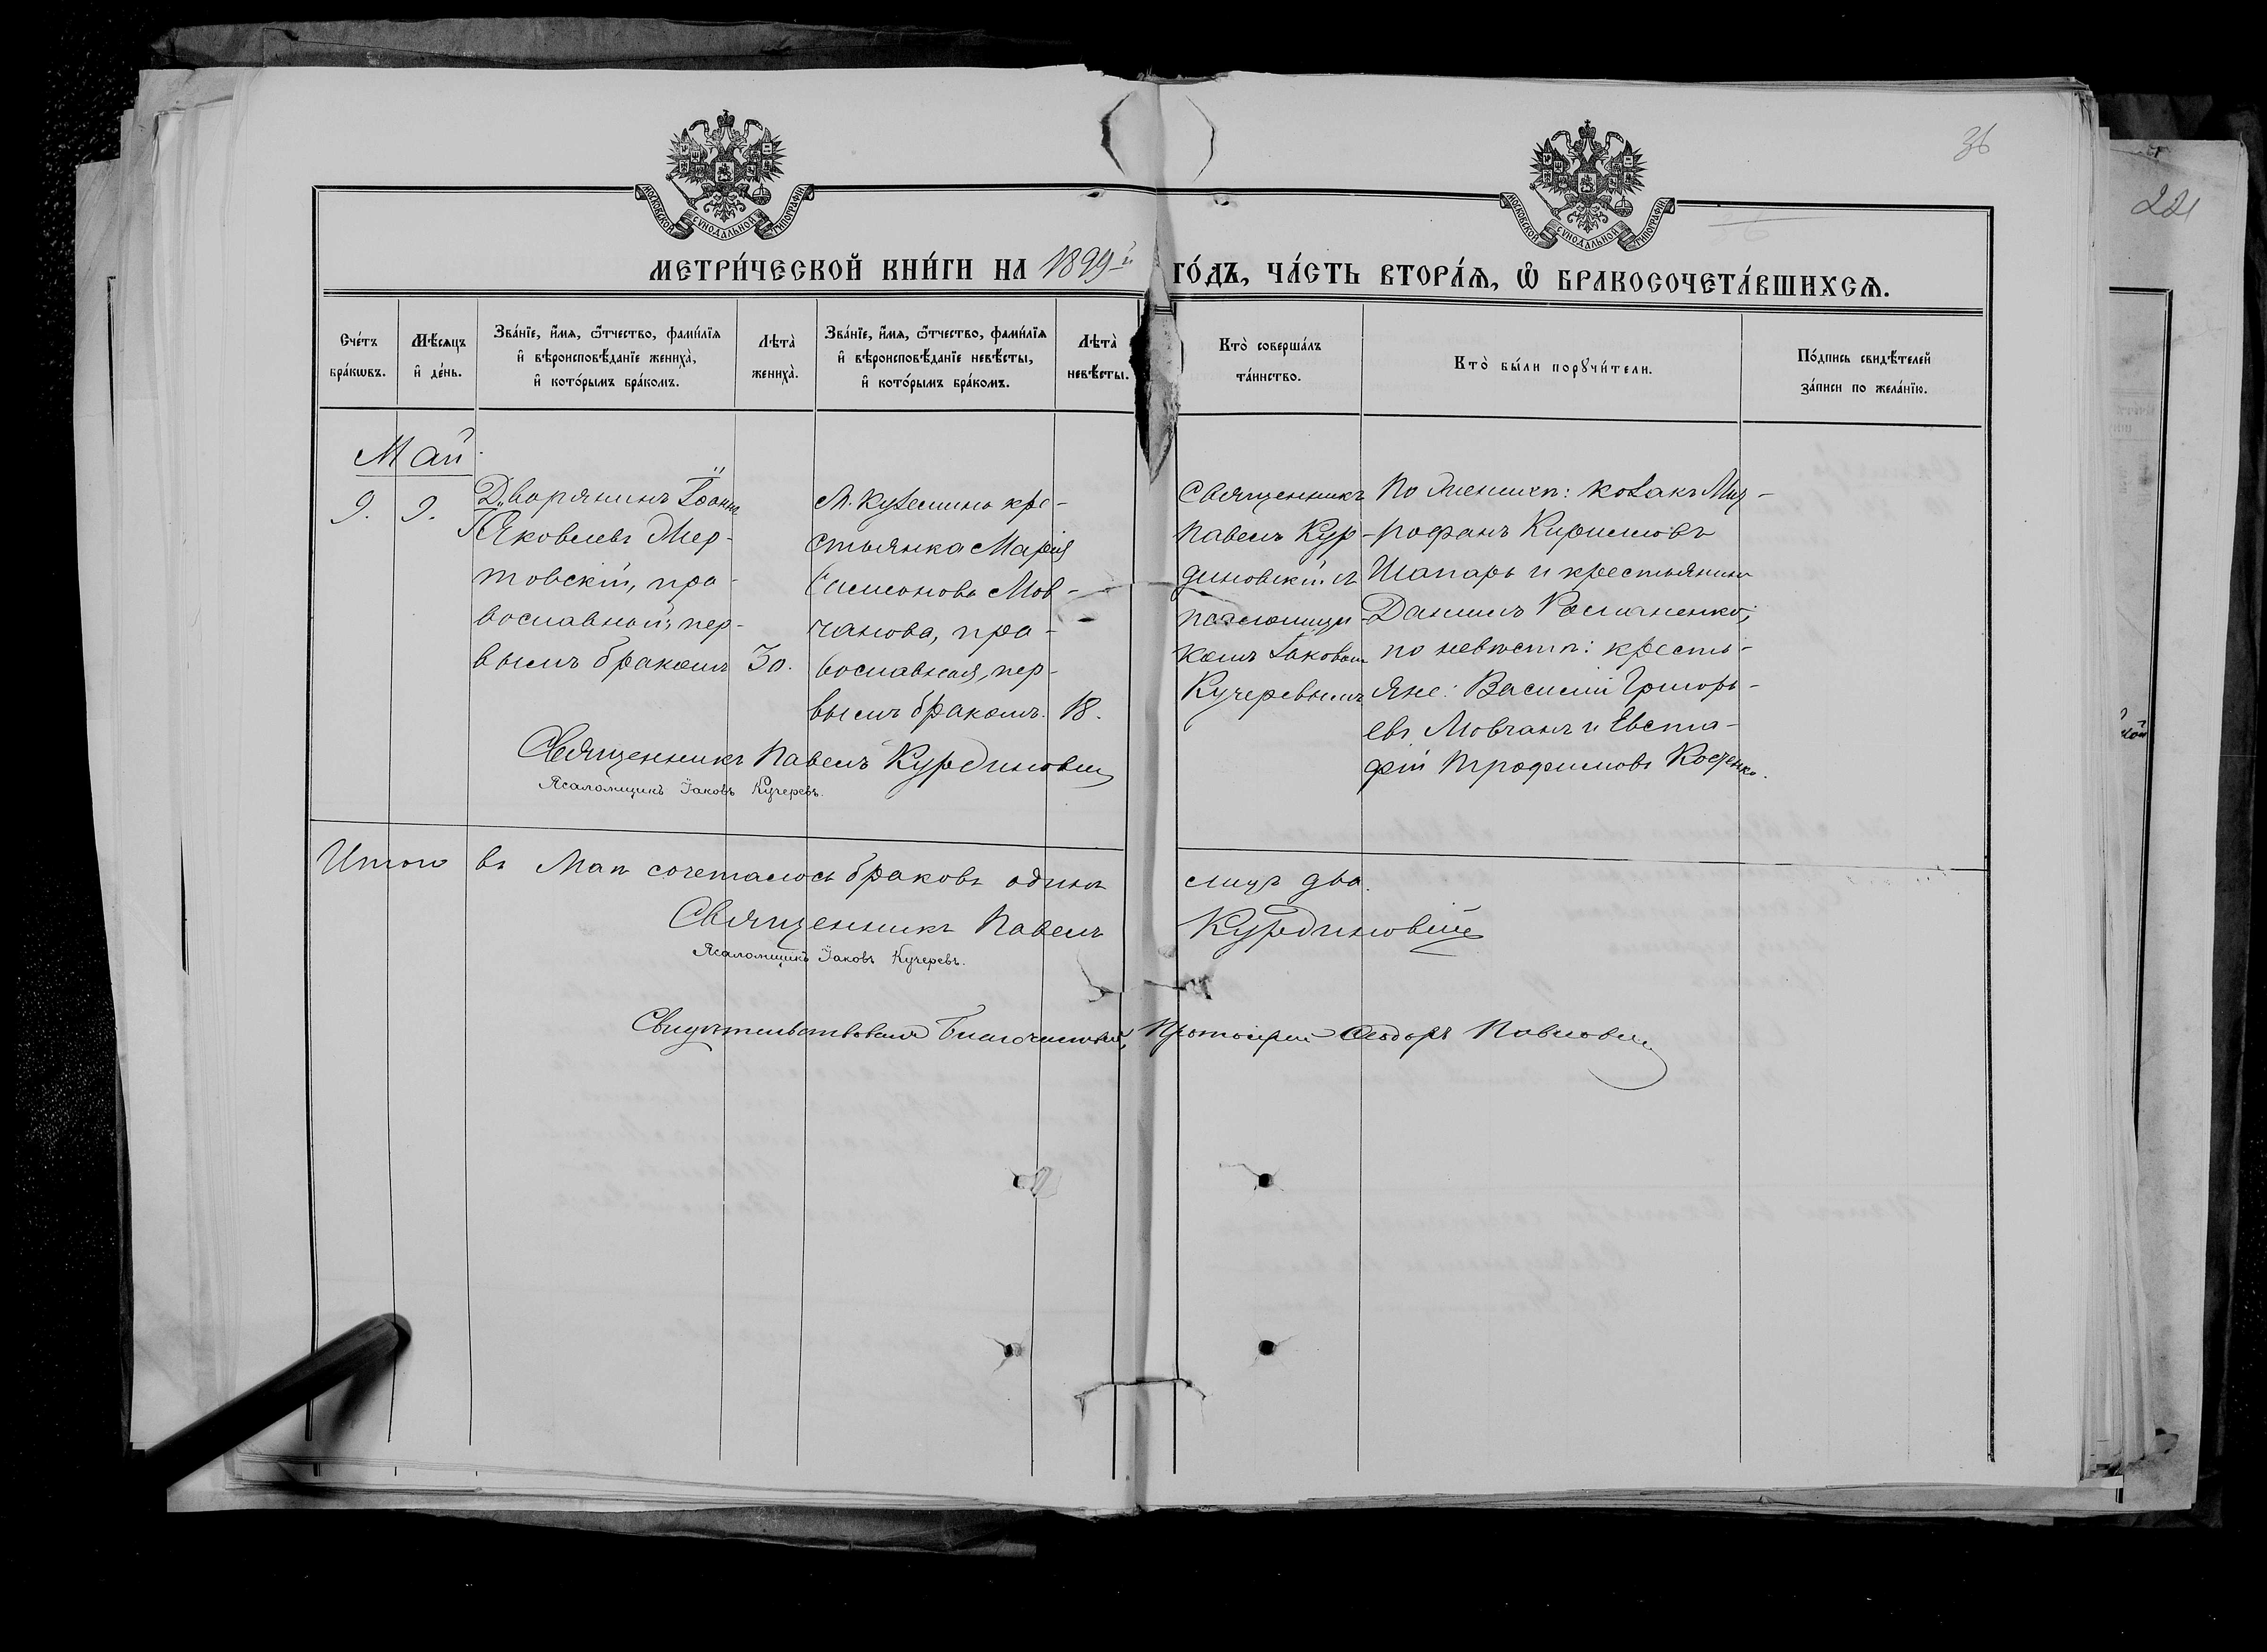 36
221
МОСКОВСКОЙ СУНОДАЛЬНОЙ ТИПОГРАФІИ
МОСКОВСКОЙ СУНОДАЛЬНОЙ ТИПОГРАФІИ
МЕТРИ́ЧЕСКОЙ КНИ́ГИ НА 1899й ГО́ДЪ, ЧА́СТЬ ВТОРА́Ѧ, Ѡ҆ БРАКОСОЧЕТА́ВШИХСѦ.
Сче́тъ
бра́кѡвъ.
Мѣ́сѧцъ
и҆ де́нь.
Зва́нїе, и҆́мѧ, ѻ҆́тчество, фами́лїѧ
и҆ вѣроисповѣ́данїе жениха̀,
и҆ кото́рымъ бра́комъ.
Лѣта̀
жениха̀.
Зва́нїе, и҆́мѧ, ѻ҆́тчество, фами́лїѧ
и҆ вѣроисповѣ́данїе невѣ́сты,
и҆ кото́рымъ бра́комъ.
Лѣта̀
невѣ́сты.
Кто̀ соверша́лъ
та́инство.
Кто̀ бы́ли порꙋчи́тели.
По́дпись свидѣ́телей
за́писи по жела́нїю.
Май
9.
9.
Дворянинъ Іоаннъ
Яковлевъ Мер-
товскій, пра-
вославный, пер-
вымъ бракомъ
30.
М. Куземина кре-
стьянка Марія
Самсонова Мов-
чанова, пра-
вославная, пер-
вымъ бракомъ.
18.
Священникъ
Павелъ Кур-
диновскій съ
псаломщи-
комъ Іаковомъ
Кучеревымъ
По женихѣ: козакъ Мит-
рофанъ Кириловъ
Шапарь и крестьянинъ
Даніилъ Романенко;
по невѣстѣ: кресть-
яне: Василій Григорь-
евъ Мовчанъ и Евста-
фій Трофимовъ Костенко.
Священникъ Павелъ Курдиновскій
Псаломщикъ Іаковъ Кучеревъ.
Итого въ Маѣ сочеталось браковъ одинъ лицъ два.
Священникъ Павелъ Курдиновскій
Псаломщикъ Іаковъ Кучеревъ.
Свидѣтельствовалъ Благочинный, Протоіерей Ѳеодоръ Павловскій